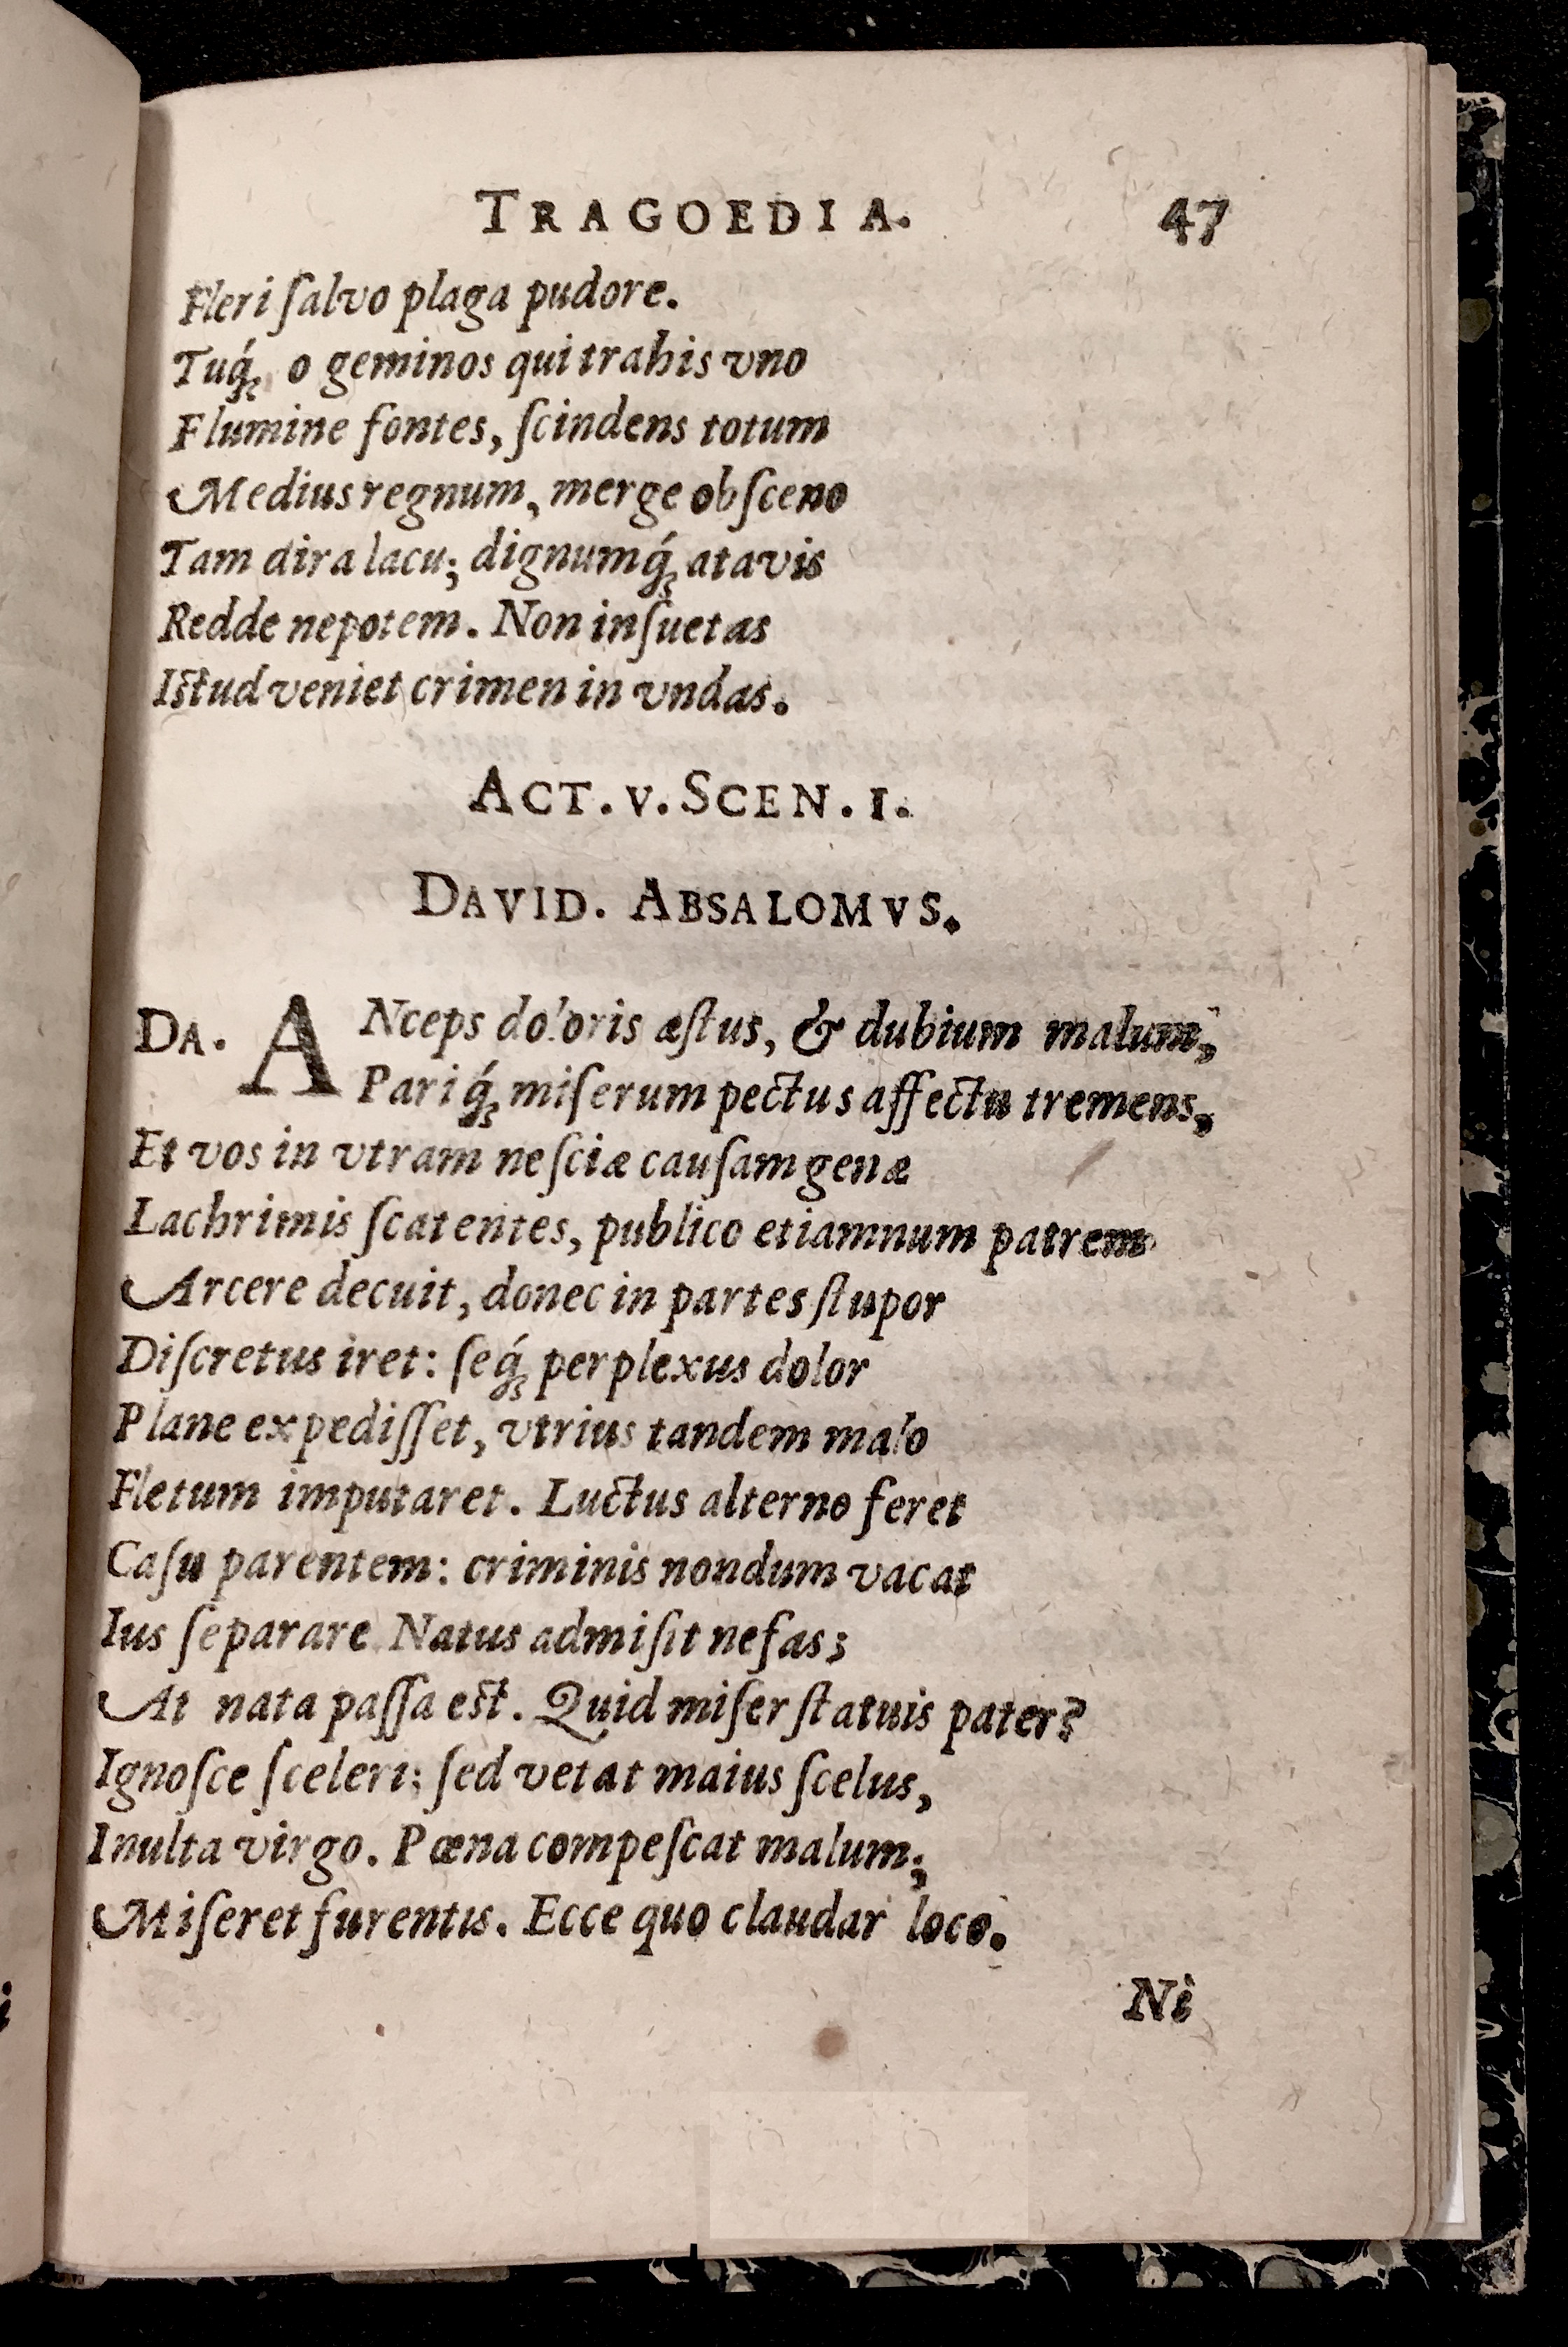 TRAGOEDIA. 47
Fleri ſalvo plaga pudore.
Tuq́ꝫ o geminos qui trahis vno
Flumine fontes, ſcindens totum
Medius regnum, merge obſceno
Tam dira lacu; dignumq́ꝫ atavis
Redde nepotem. Non inſuetas
Iſtud veniet crimen in vndas.
ACT. V. SCEN. I.
DAVID. ABSALOMVS.
DA. ANceps doloris æſtus, & dubium malum,
Pariq́ꝫ miſerum pectus affectu tremens,
Et vos in vtram neſciæ cauſam genæ
Lachrimis ſcatentes, publico etiamnum patrem
Arcere decuit, donec in partes ſtupor
Diſcretus iret: ſeq́ꝫ perplexus dolor
Plane expediſſet, vtrius tandem malo
Fletum imputaret. Luctus alterno feret
Caſu parentem: criminis nondum vacat
Ius ſeparare Natus admiſit nefas;
At nata paſſa eſt. Quid miſer ſtatuis pater?
Ignoſce ſceleri; ſed vetat maius ſcelus,
Inulta virgo. Pœna compeſcat malum;
Miſeret furentis. Ecce quo claudar loco.
Ni